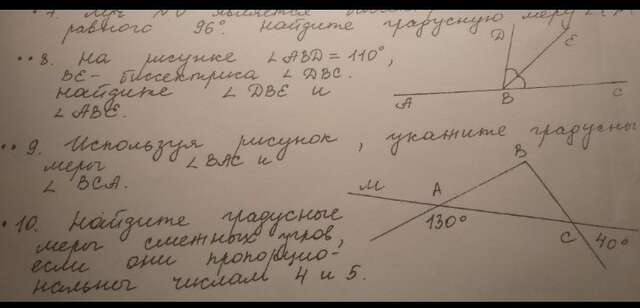 равного 96°. Найдите градусную меру
••8. На рисунке ∠ABD = 110°,
BE - биссектриса ∠DBC.
Найдите ∠DBE и
∠ABE.
D
E
A
B
C
••9. Используя рисунок, укажите градусны
меры ∠BAC и
∠BCA.
B
M
A
130°
C
40°
•10. Найдите градусные
меры смежных углов,
если они пропорцио-
нальны числам 4 и 5.